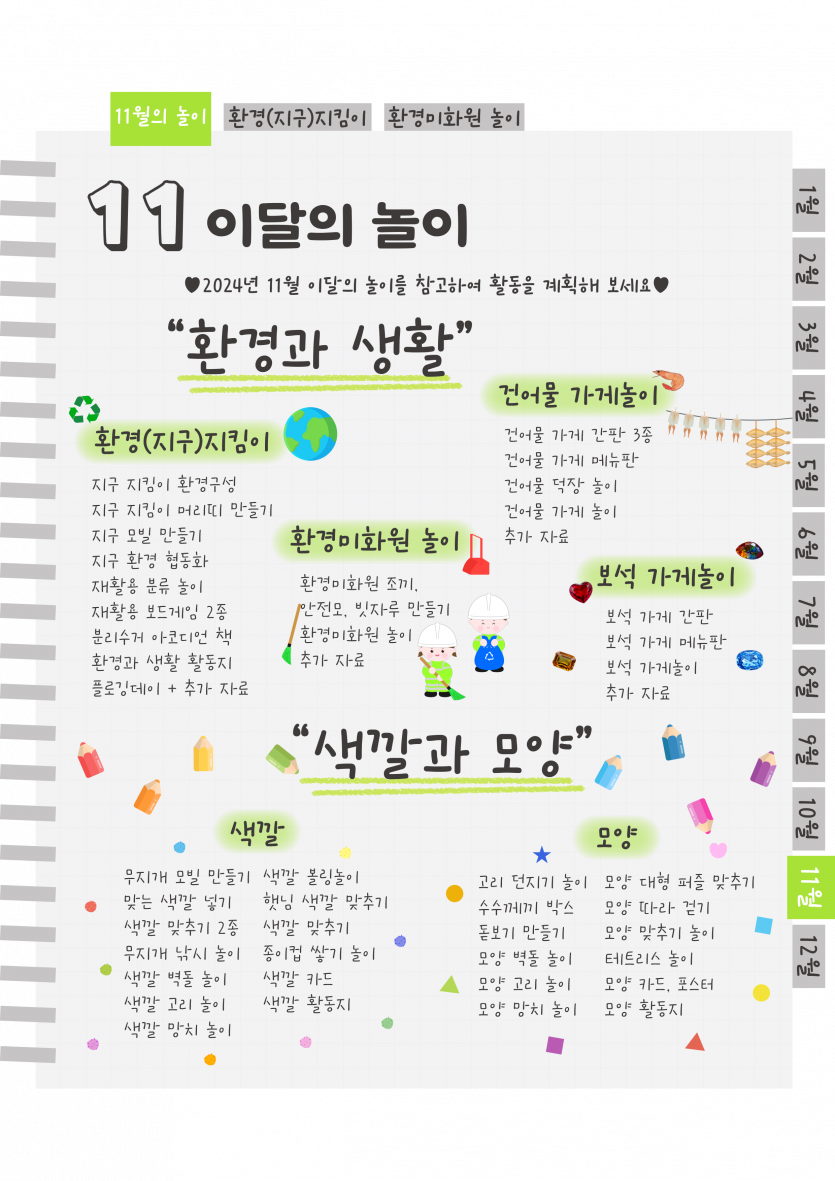 11월의 놀이
환경(지구)지킴이
환경미화원 놀이
11 이달의 놀이
♥2024년 11월 이달의 놀이를 참고하여 활동을 계획해 보세요♥
“환경과 생활”
환경(지구)지킴이
지구 지킴이 환경구성
지구 지킴이 머리띠 만들기
지구 모빌 만들기
지구 환경 협동화
재활용 분류 놀이
재활용 보드게임 2종
분리수거 아코디언 책
환경과 생활 활동지
플로깅데이 + 추가 자료
환경미화원 놀이
환경미화원 조끼,
안전모, 빗자루 만들기
환경미화원 놀이
추가 자료
건어물 가게놀이
건어물 가게 간판 3종
건어물 가게 메뉴판
건어물 덕장 놀이
건어물 가게 놀이
추가 자료
보석 가게놀이
보석 가게 간판
보석 가게 메뉴판
보석 가게놀이
추가 자료
“색깔과 모양”
색깔
무지개 모빌 만들기
맞는 색깔 넣기
색깔 맞추기 2종
무지개 낚시 놀이
색깔 벽돌 놀이
색깔 고리 놀이
색깔 망치 놀이
색깔 볼링놀이
햇님 색깔 맞추기
색깔 맞추기
종이컵 쌓기 놀이
색깔 카드
색깔 활동지
모양
고리 던지기 놀이
수수께끼 박스
돋보기 만들기
모양 벽돌 놀이
모양 고리 놀이
모양 망치 놀이
모양 대형 퍼즐 맞추기
모양 따라 걷기
모양 맞추기 놀이
테트리스 놀이
모양 카드, 포스터
모양 활동지
1월
2월
3월
4월
5월
6월
7월
8월
9월
10월
11월
12월